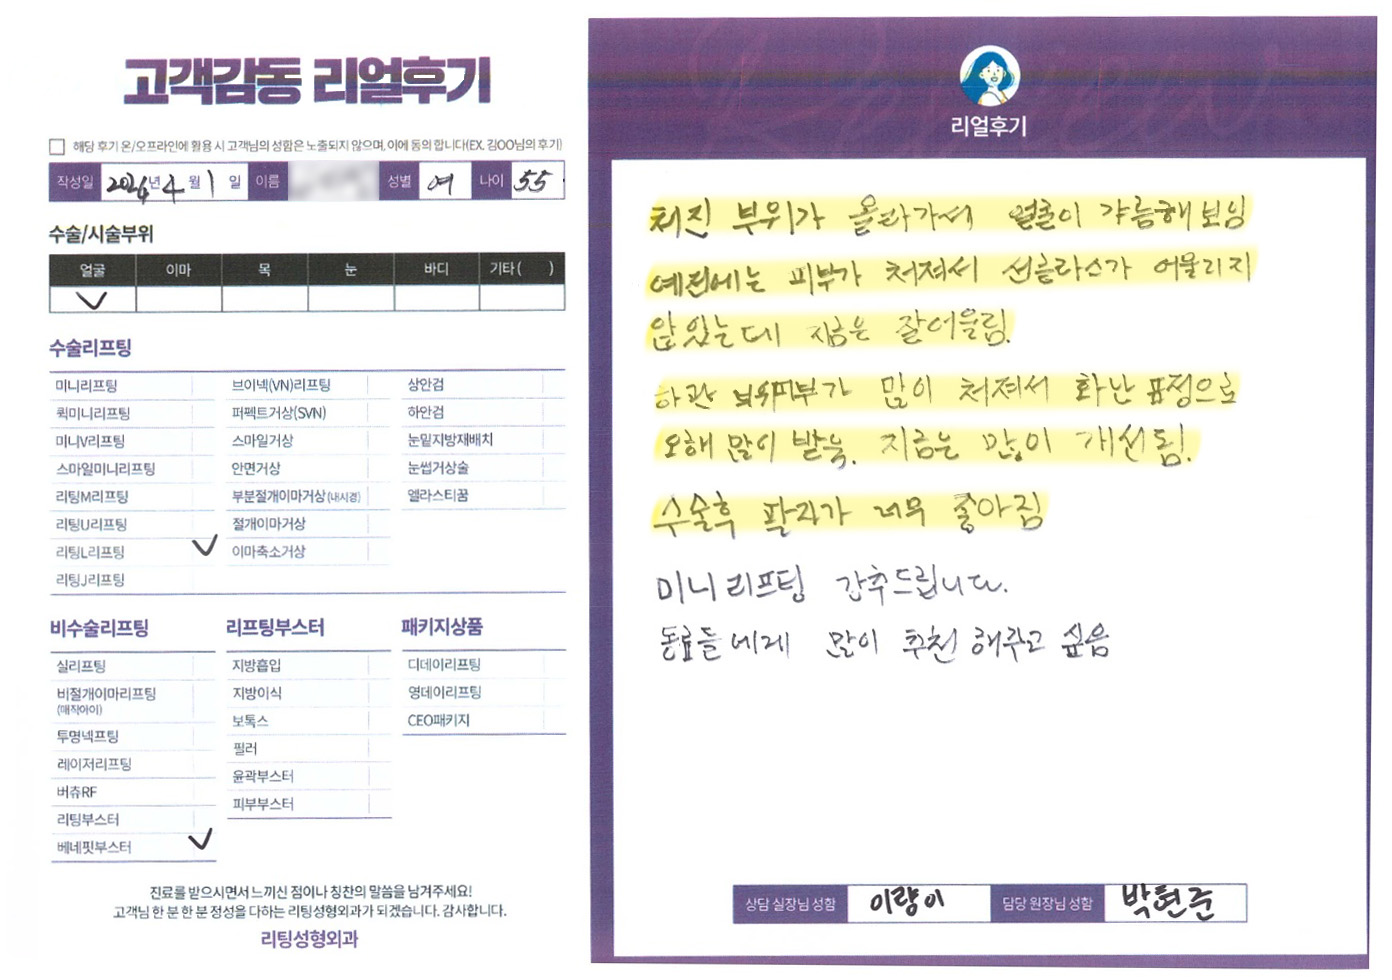 고객감동 리얼후기
해당 후기 온/오프라인에 활용 시 고객님의 성함은 노출되지 않으며, 이에 동의 합니다(EX. 김OO님의 후기)
작성일 2024년 4월 1일 이름 성별 여 나이 55
수술/시술부위
얼굴 이마 목 눈 바디 기타 ( )
수술리프팅
미니리프팅 브이넥(VN)리프팅 상안검
퀵미니리프팅 퍼펙트거상(SVN) 하안검
미니V리프팅 스마일거상 눈밑지방재배치
스마일미니리프팅 안면거상 눈썹거상술
리팅M리프팅 부분절개이마거상(내시경) 엘라스티꿈
리팅U리프팅 절개이마거상
리팅L리프팅 이마축소거상
리팅J리프팅
비수술리프팅
실리프팅
비절개이마리프팅
(매직아이)
투명넥프팅
레이저리프팅
버츄RF
리팅부스터
베네핏부스터
리프팅부스터
지방흡입
지방이식
보톡스
필러
윤곽부스터
피부부스터
패키지상품
디데이리프팅
영데이리프팅
CEO패키지
진료를 받으시면서 느끼신 점이나 칭찬의 말씀을 남겨주세요!
고객님 한 분 한 분 정성을 다하는 리팅성형외과가 되겠습니다. 감사합니다.
리팅성형외과
리얼후기
처진 부위가 올라가서 얼굴이 갸름해보임
예전에는 피부가 처져서 선글라스가 어울리지
않았는데 지금은 잘어울림.
하관 피부가 많이 처져서 화난 표정으로
오해 많이 받음. 지금은 많이 개선됨!
수술후 팔자가 너무 좋아짐
미니리프팅 강추드립니다.
동료들에게 많이 추천해주고 싶음
상담 실장님 성함 이량이 담당 원장님 성함 박현준